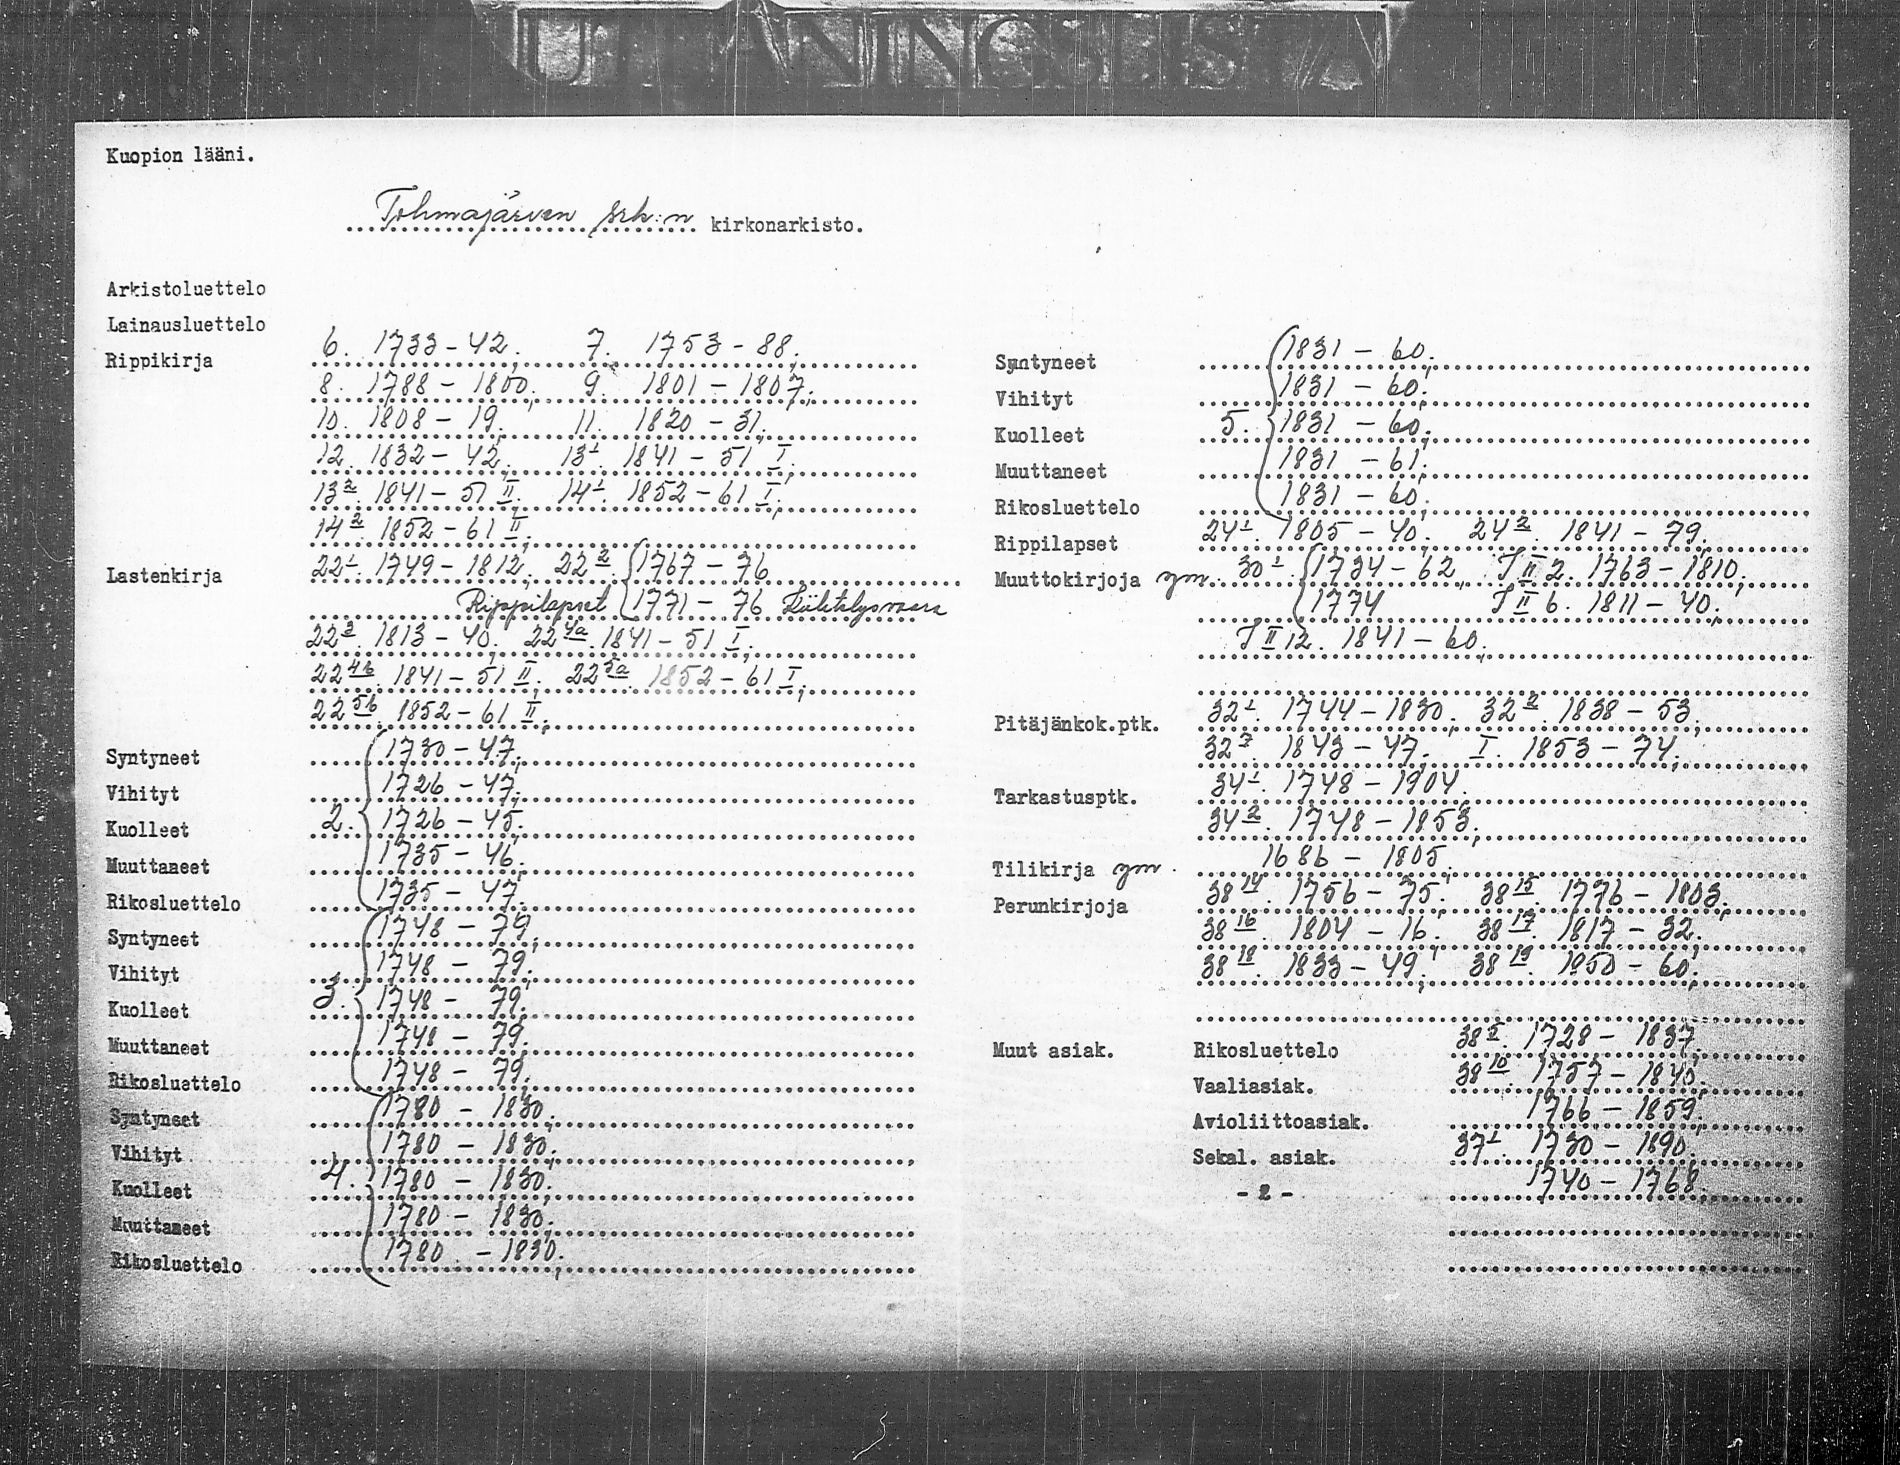 Kuopion lääni.
Tohmajärven srk:n kirkonarkisto.
Arkistoluettelo
Lainausluettelo
Rippikirja 6. 1733-42; 7. 1753-88;
8. 1788-1800; 9. 1801-1807;
10. 1808-19; 11. 1820-31;
12. 1832-42; 13¹. 1841-51 I;
13². 1841-51 II; 14¹. 1852-61 I;
14². 1852-61 II;
Lastenkirja 22¹. 1749-1812; 22². 1767-76
Rippilapset 1771-76 Kiihtelysvaara
22³. 1813-40; 22⁴ᵃ. 1841-51 I;
22⁴ᵇ. 1841-51 II; 22⁵ᵃ. 1852-61 I;
22⁵ᵇ. 1852-61 II;
Syntyneet 1730-47;
Vihityt 1726-47;
Kuolleet 2. 1726-45;
Muuttaneet 1735-46;
Rikosluettelo 1735-47;
Syntyneet 1748-79;
Vihityt 1748-79;
Kuolleet 3. 1748-79;
Muuttaneet 1748-79;
Rikosluettelo 1748-79;
Syntyneet 1780-1830;
Vihityt 1780-1830;
Kuolleet 4. 1780-1830;
Muuttaneet 1780-1830;
Rikosluettelo 1780-1830;
Syntyneet 1831-60;
Vihityt 1831-60;
Kuolleet 5. 1831-60;
Muuttaneet 1831-61;
Rikosluettelo 1831-60;
Rippilapset 24¹. 1805-40; 24². 1841-79;
Muuttokirjoja ym. 30¹. 1734-62, I II 2. 1763-1810;
1774 I II 6. 1811-40;
I II 12. 1841-60;
Pitäjänkok.ptk. 32¹. 1744-1830; 32². 1838-53;
32⁷. 1843-47; I. 1853-74;
Tarkastusptk. 34¹. 1748-1904.
34². 1748-1853;
Tilikirja ym. 1686-1805;
Perunkirjoja 38¹⁴. 1756-75; 38¹⁵. 1776-1803;
38¹⁶. 1804-16; 38¹⁷. 1817-32;
38¹⁸. 1833-49; 38¹⁹. 1850-60;
Muut asiak. Rikosluettelo 38⁵. 1728-1837;
Vaaliasiak. 38¹⁰. 1757-1840;
Avioliittoasiak. 1766-1859;
Sekal. asiak. 37¹. 1730-1890;
- 2 - 1740-1768;